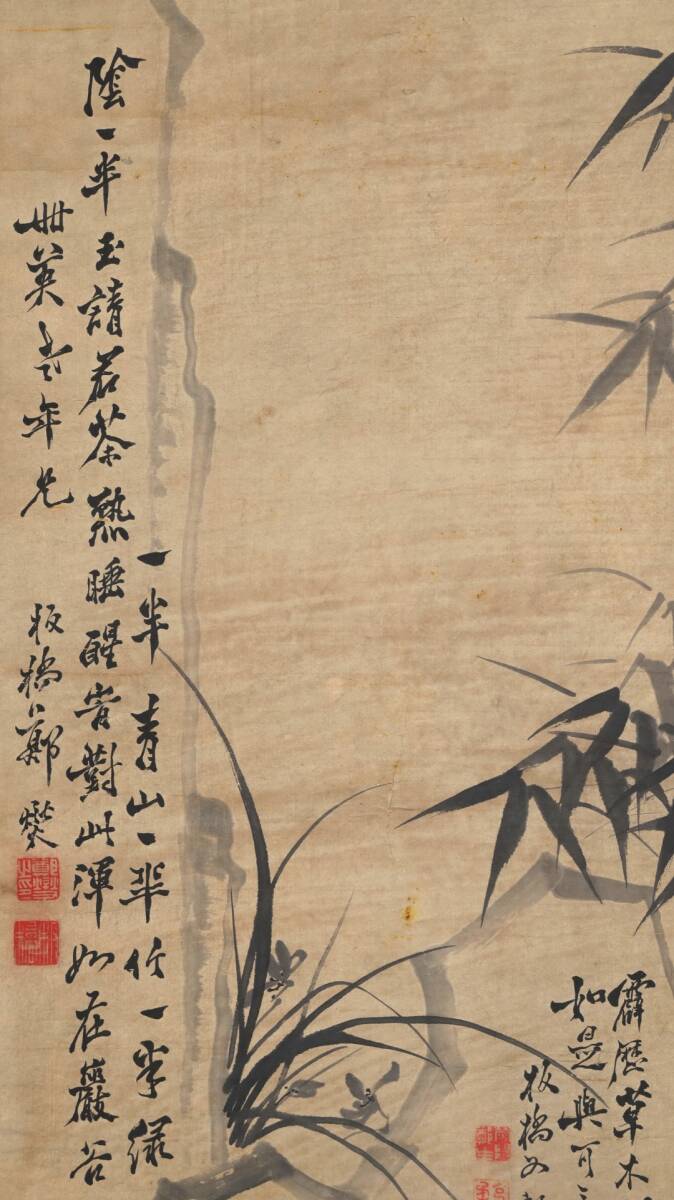 一半青山一半竹一半綠
陰一半玉請君茶熟睡醒時對此渾如在巖谷
毋英老年兄
板橋鄭燮
霹歷草木
如是與可
板橋